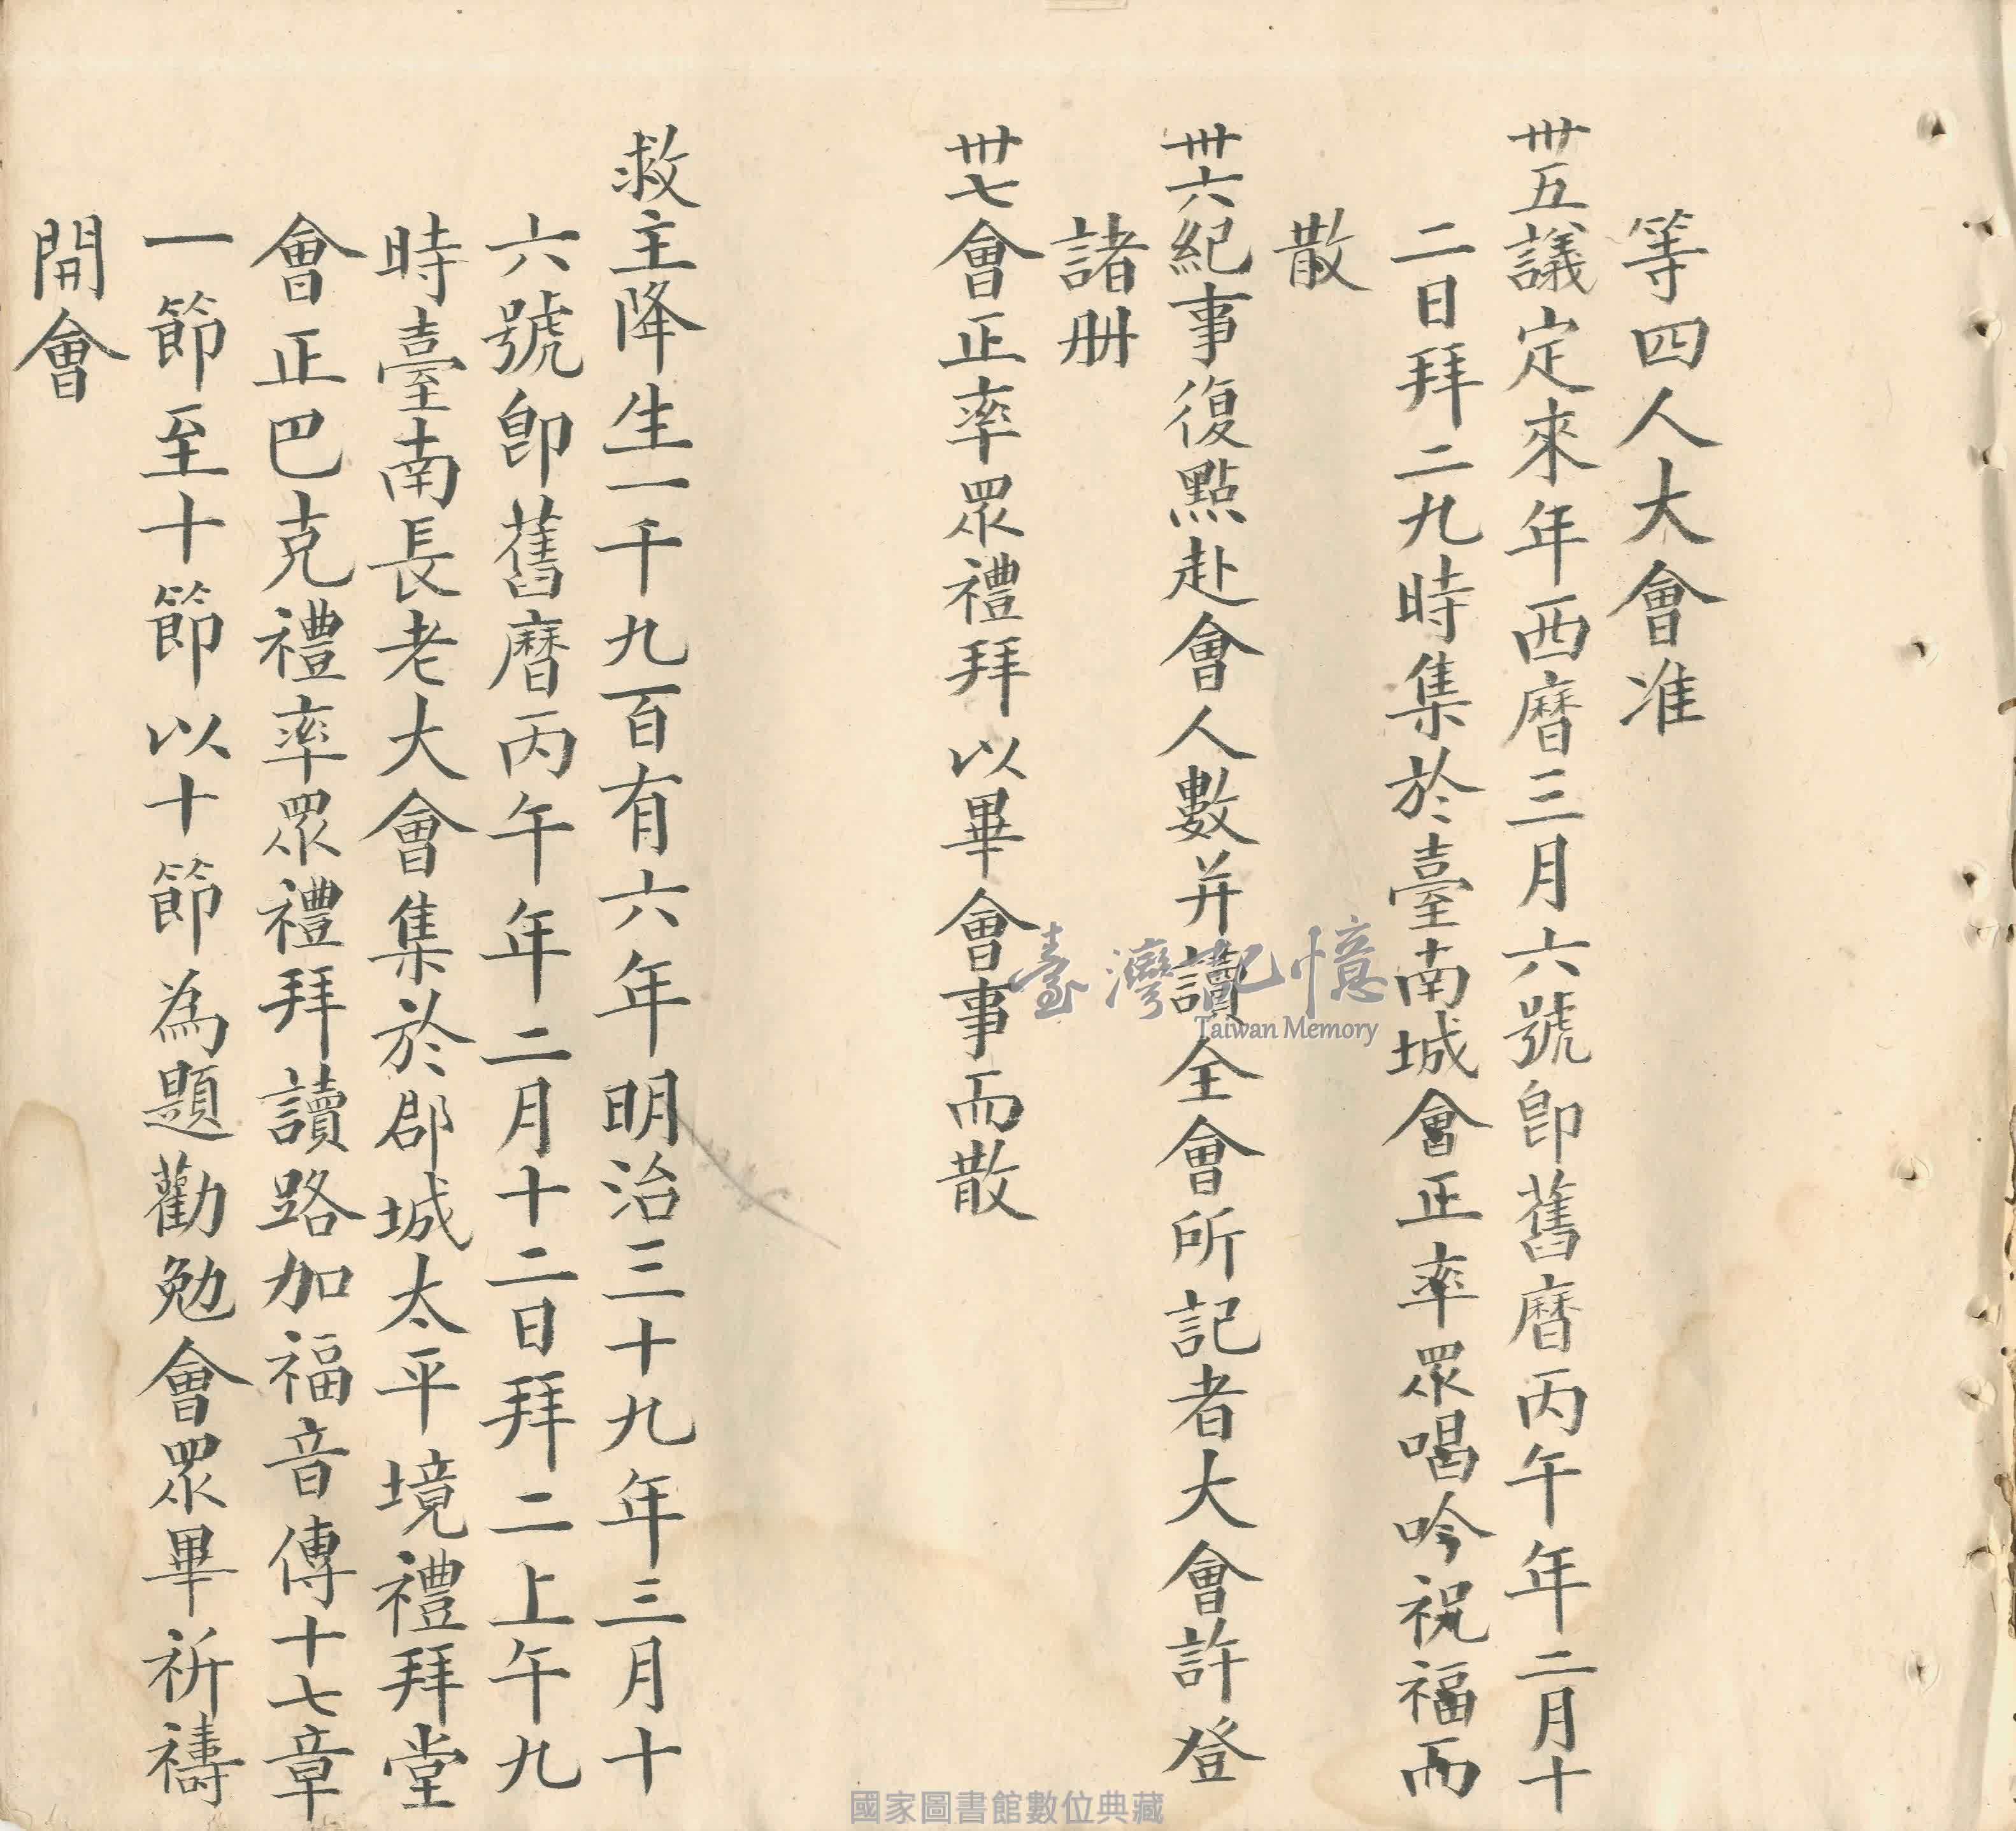 等四人大會准
卅五議定來年西曆三月六號卽舊曆丙午年二月十
二日拜二九時集於臺南城會正率眾唱吟祝福而
散
卅六紀事復點赴會人數并讀全會所記者大會許登
諸册
卅七會正率眾禮拜以畢會事而散
救主降生一千九百有六年明治三十九年三月十
六號卽舊曆丙午年二月十二日拜二上午九
時臺南長老大會集於郡城太平境禮拜堂
會正巴克禮率眾禮拜讀路加福音傳十七章
一節至十節以十節為題勸勉會眾畢祈禱
開會
臺灣記憶
Taiwan Memory
國家圖書館數位典藏